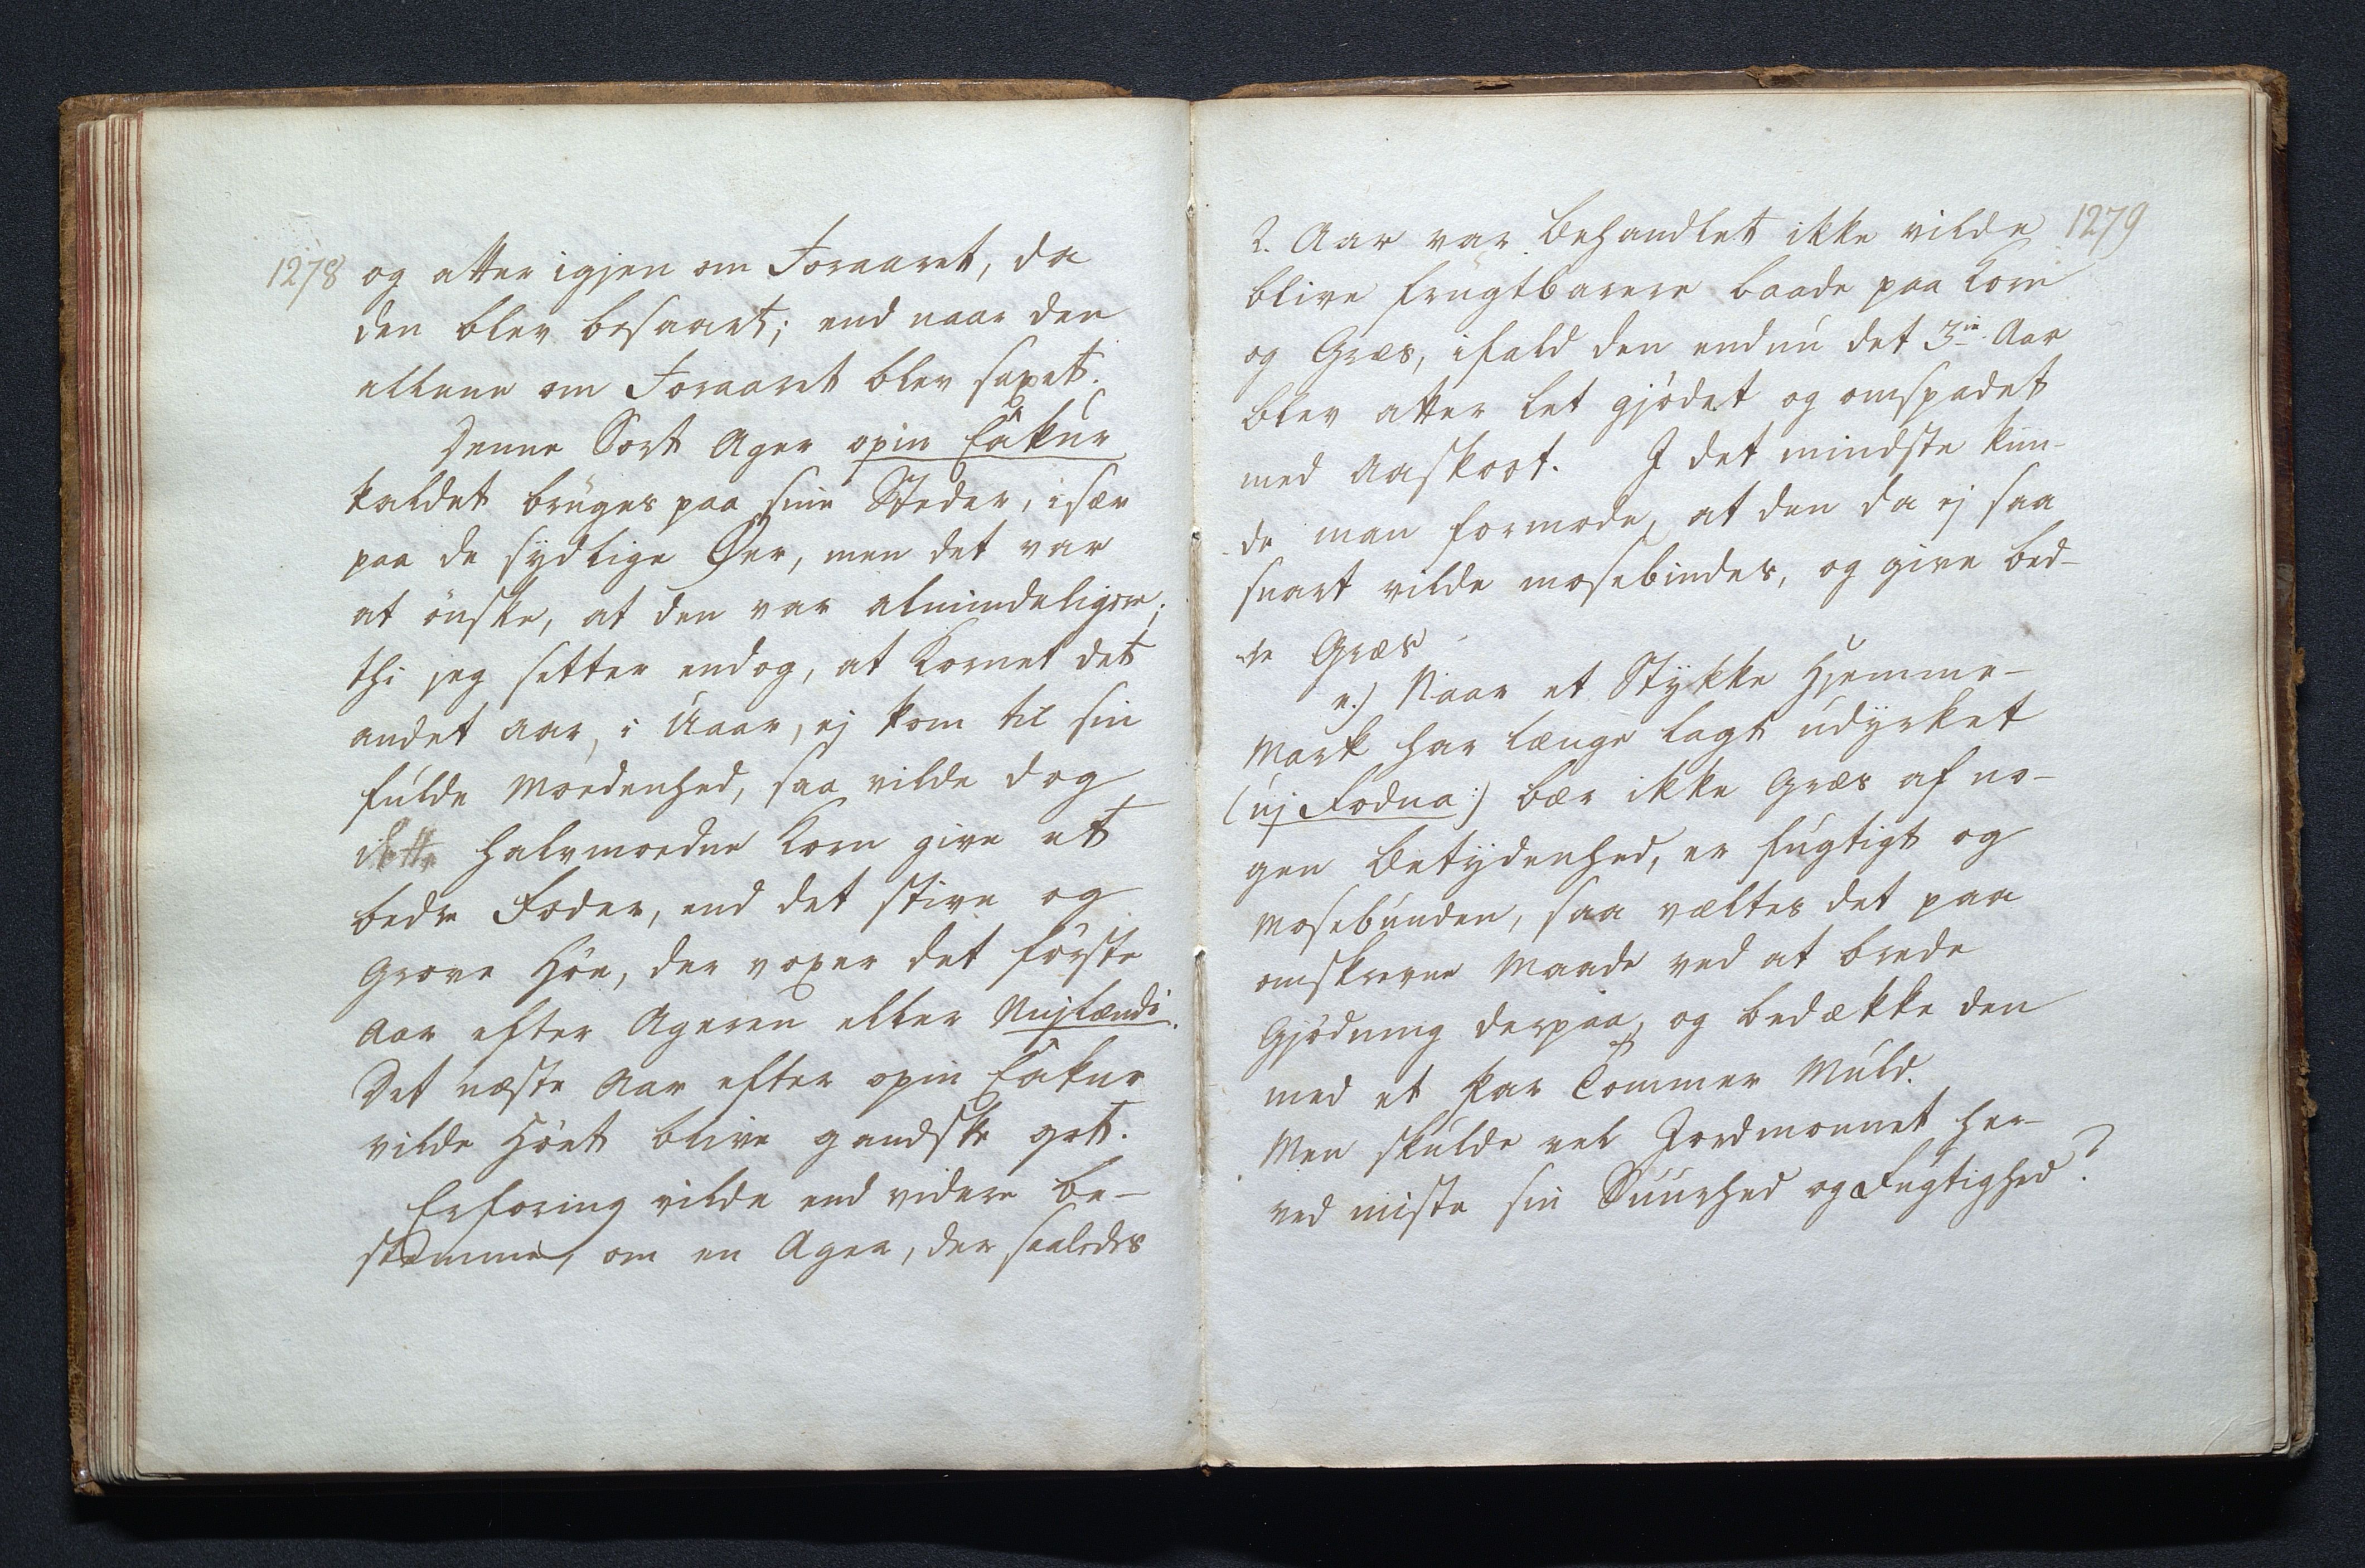 1278 og atter igjen om Foraaret, da
den blev besaaet; end naar den
allene om Foraaret blev saaet.
Denne Sort Ager opin Eâkur
kaldet brúges paa sine Steder, især
paa de sydlige Øer, men det var
at önske, at den var almindeligere;
thi jeg setter endog, at Kornet det
andet Aar, i Uaar, ej kom til sin
fúlde Moedenhed, saa vilde dog
dette halvmoedne Korn give et
bedre Foder, end det stive og
Grove Höe, der voxer det förste
Aar efter Ageren eller Nujlændi.
Det næste Aar efter opin Eâkur
vilde Höet blive gandske got.
Erfaring vilde end videre be-
stemme, om en Ager, der saaledes
1279
2. Aar var behandlet ikke vilde
blive frúgtbarere baade paa Korn
og Græs, ifald den endnú det 3ie Aar
blev atter let gjödet og omspadet
med Aaskort. I det mindste kún-
de man formode, at den da ej saa
snart vilde mosebindes, og give bed-
re Græs
e.) Naar et Stykke Hjemme-
Mark har længe lagt údyrket
(új Fodna:) bær ikke Græs af no-
gen Betydenhed, er fúgtigt og
mosebúnden, saa væltes det paa
omskrevne Maade ved at brede
Gjödning derpaa, og bedække den
med et Par Tommer Múld.
Men skúlde vel Jordmonnet her-
ved miste sin Súúrhed og Fúgtighed?